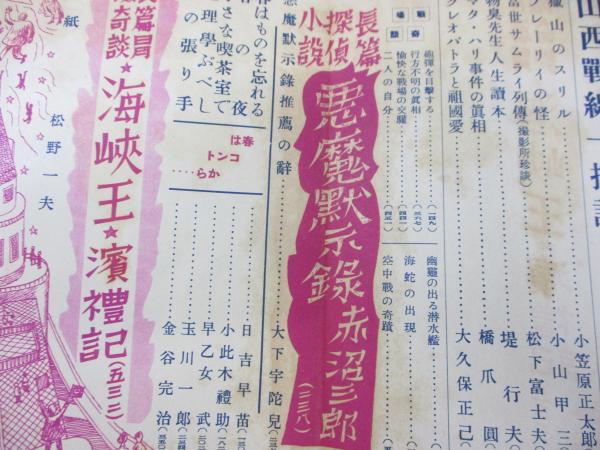 山西戰線
獵山のスリル……小山甲三
小笠原正太郎
フレーリイの怪……松下富士夫
富世サムライ列傳(撮影所珍談)……堤行夫
物臭先生人生讀本……橋爪圓
マタ・ハリ事件の眞相
クレオパトラと祖國愛……大久保正己
戰場奇蹟
砲彈を目撃する……(一四九)
行方不明の眞相……(三六七)
愉快な戰場の交驩……(四四一)
二人の自分……(四五一)
幽靈の出る潜水艦
海蛇の出現
空中戰の奇蹟
長篇探偵小說
惡魔默示錄 赤沼三郎(二三八)
惡魔默示錄推薦の辭……大下宇陀兒
春はコントから……
春はものを忘れる……日吉早苗
の夜……小此木禮助
さな喫茶室で……早乙女武
理學ぶべし……玉川一郎
の張り手……金谷完治
長篇冒
奇談
★海峽王★濱禮記(五三二)
松野一夫
紙